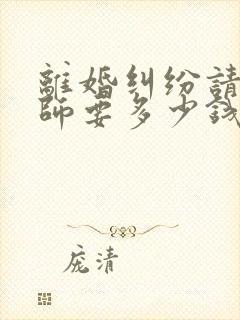 離婚糾纷請
師要多少錢
庞清